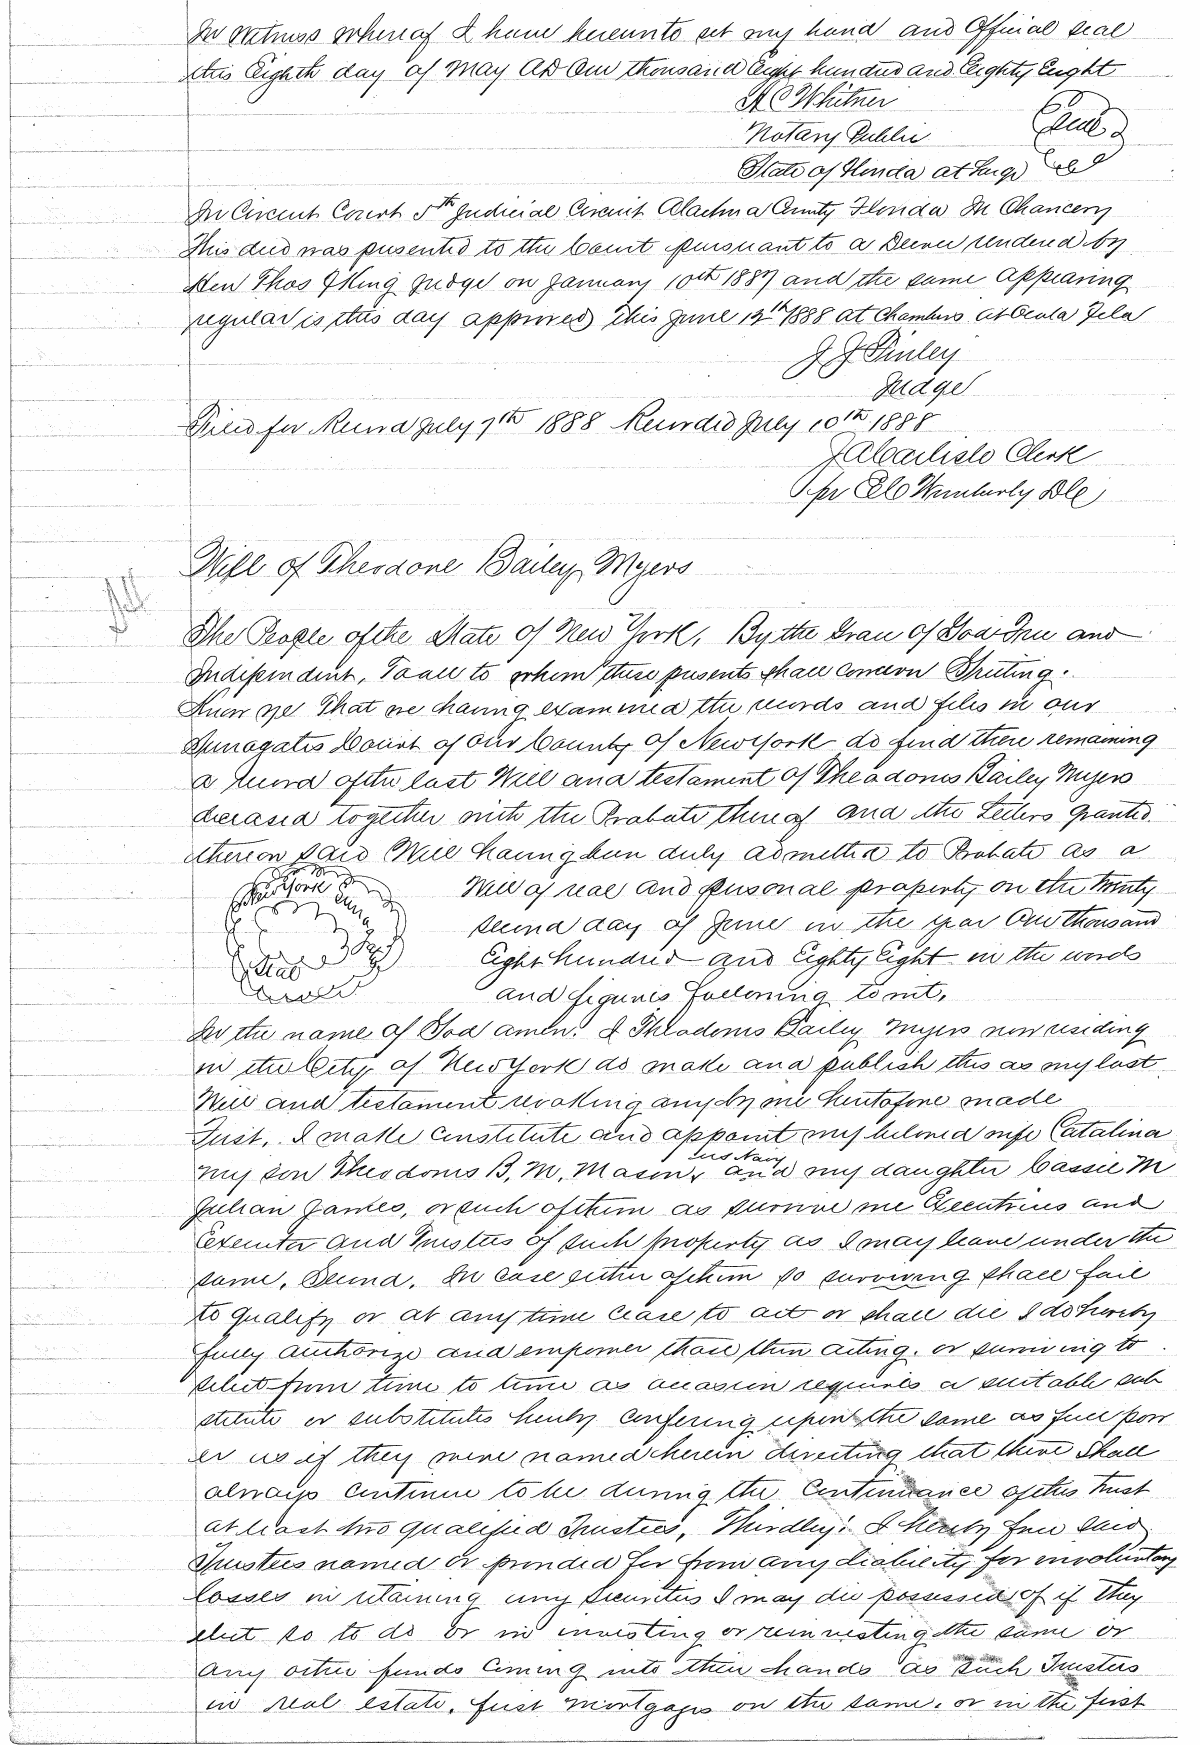 In witness whereof I have hereunto set my hand and Official seal
this Eighth day of May AD One thousand Eight hundred and Eighty Eight
A C Whitner
Notary Public
Seal
State of Florida at Large
In Circuit Court 5th Judicial Circuit Alachua County Florida In Chancery
This deed was presented to the Court pursuant to a Decree rendered by
Hon Thos F King Judge on January 10th 1887 and the same appearing
regular is this day approved This June 12th 1888 at Chambers at Ocala Fla
J J Finley
Judge
Filed for Record July 7th 1888 Recorded July 10th 1888
J A Carlisle Clerk
per Wimberly D.C.
Will of Theodore Bailey Myers
The People of the State of New York, By the Grace of God Free and
Independent, To all to whom these presents shall concern Greeting.
Know ye That we having examined the records and files in our
Surrogates Court of our County of New York do find there remaining
a record of the last Will and testament of Theodorus Bailey Myers
deceased together with the Probate thereof and the Letters granted
thereon said Will having been duly admitted to Probate as a
Will of real and personal property on the twenty
second day of June in the year One thousand
Eight hundred and Eighty Eight in the words
and figures following to wit,
In the name of God amen. I Theodorus Bailey Myers now residing
in the City of New York do make and publish this as my last
Will and testament revoking any by me heretofore made
First, I make constitute and appoint my beloved wife Catalina
U S Navy
my son Theodorus B. M. Mason, and my daughter Cassie M
Julian James, or such of them as survive me Executrices and
Executor and Trustees of such property as I may leave under the
same, Second, In case either of them so surviving shall fail
to qualify or at any time cease to act or shall die I do hereby
fully authorize and empower those then acting or surviving to
select from time to time as occasion requires a suitable sub
stitute or substitutes hereby confering upon the same as full pow
er as if they were named herein directing that there shall
always continue to be during the continuance of this trust
at least two qualified Trustees, Thirdley: I hereby free said
Trustees named or provided for from any liability for involuntary
losses in retaining any securities I may die possessed of if they
elect so to do or in investing or reinvesting the same or
any other funds coming into their hands as such Trustees
in real estate, first mortgages on the same, or in the first